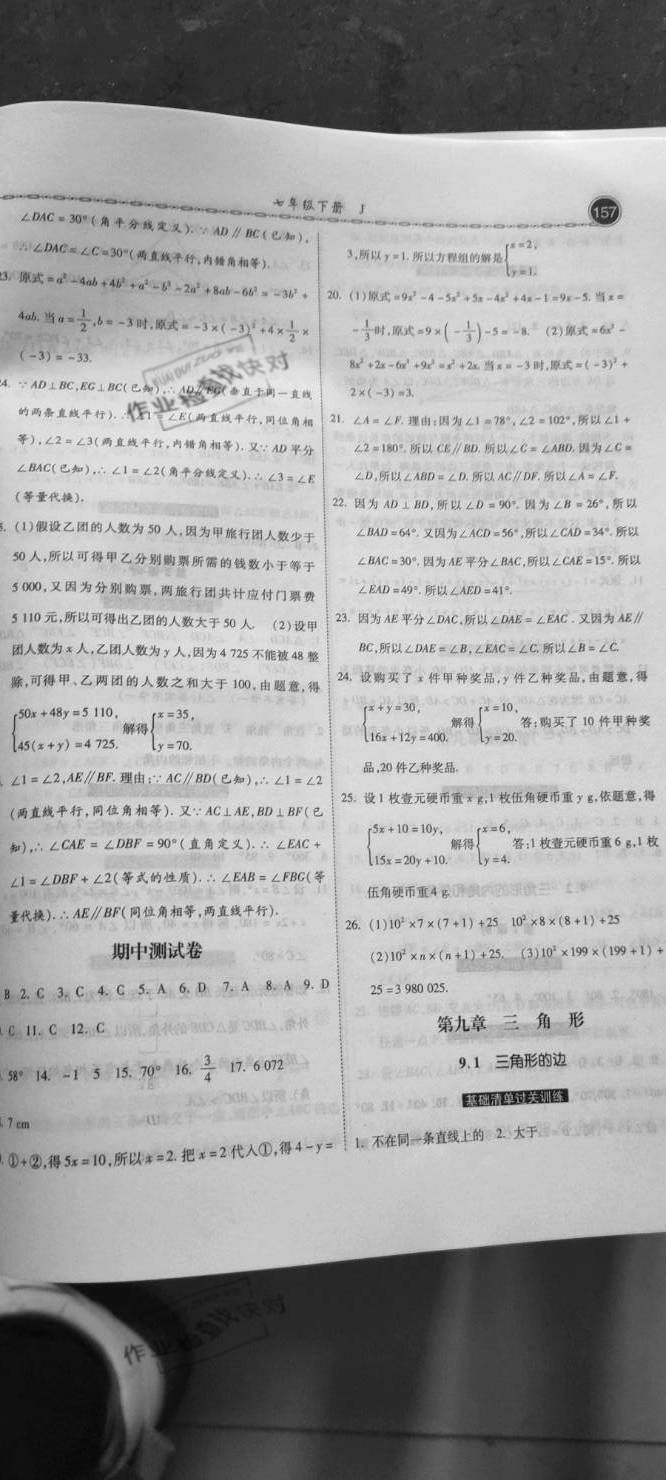 七年级下册 J
157
∠DAC = 30°(角平分线定义). ∵ AD // BC(已知),
∴ ∠DAC = ∠C = 30°(两直线平行,内错角相等).
23. 原式 = a² - 4ab + 4b² + a² - b² - 2a² + 8ab - 6b² = -3b² +
4ab. 当 a = 1/2, b = -3 时,原式 = -3 × (-3)² + 4 × 1/2 ×
(-3) = -33.
24. ∵ AD⊥BC, EG⊥BC(已知), ∴ AD // EG(垂直于同一直线
的两条直线平行). ∴ ∠1 = ∠E(两直线平行,同位角相
等), ∠2 = ∠3(两直线平行,内错角相等). 又∵ AD 平分
∠BAC(已知), ∴ ∠1 = ∠2(角平分线定义). ∴ ∠3 = ∠E
(等量代换).
(1)假设乙团的人数为 50 人,因为甲旅行团人数少于
50 人,所以可得甲乙分别购票所需的钱数小于等于
5 000,又因为分别购票,两旅行团共计应付门票费
5 110 元,所以可得出乙团的人数大于 50 人. (2)设甲
团人数为 x 人,乙团人数为 y 人,因为 4 725 不能被 48 整
除,可得甲、乙两团的人数之和大于 100,由题意,得
{50x + 48y = 5 110, 解得 {x = 35,
45(x + y) = 4 725. y = 70.
∠1 = ∠2, AE // BF. 理由: ∵ AC // BD(已知), ∴ ∠1 = ∠2
(两直线平行,同位角相等). 又∵ AC⊥AE, BD⊥BF(已
知), ∴ ∠CAE = ∠DBF = 90°(直角定义). ∴ ∠EAC +
∠1 = ∠DBF + ∠2(等式的性质). ∴ ∠EAB = ∠FBG(等
量代换). ∴ AE // BF(同位角相等,两直线平行).
期中测试卷
B 2. C 3. C 4. C 5. A 6. D 7. A 8. A 9. D
C 11. C 12. C
58° 14. -1 5 15. 70° 16. 3/4 17. 6 072
7 cm
①+②,得 5x = 10,所以 x = 2. 把 x = 2 代入①,得 4 - y =
3,所以 y = 1. 所以方程组的解是 {x = 2,
y = 1.
20. (1)原式 = 9x² - 4 - 5x² + 5x - 4x² + 4x - 1 = 9x - 5. 当 x =
-1/3 时,原式 = 9 × (-1/3) - 5 = -8. (2)原式 = 6x³ -
8x² + 2x - 6x³ + 9x² = x² + 2x. 当 x = -3 时,原式 = (-3)² +
2 × (-3) = 3.
21. ∠A = ∠F. 理由:因为∠1 = 78°, ∠2 = 102°,所以∠1 +
∠2 = 180°. 所以 CE // BD. 所以∠C = ∠ABD. 因为∠C =
∠D,所以∠ABD = ∠D. 所以 AC // DF. 所以∠A = ∠F.
22. 因为 AD⊥BD,所以∠D = 90°. 因为∠B = 26°,所以
∠BAD = 64°. 又因为∠ACD = 56°,所以∠CAD = 34°. 所以
∠BAC = 30°. 因为 AE 平分∠BAC,所以∠CAE = 15°. 所以
∠EAD = 49°. 所以∠AED = 41°.
23. 因为 AE 平分∠DAC,所以∠DAE = ∠EAC. 又因为 AE //
BC,所以∠DAE = ∠B, ∠EAC = ∠C. 所以∠B = ∠C.
24. 设购买了 x 件甲种奖品, y 件乙种奖品,由题意,得
{x + y = 30, 解得 {x = 10, 答:购买了 10 件甲种奖
16x + 12y = 400. y = 20.
品,20 件乙种奖品.
25. 设 1 枚壹元硬币重 x g,1 枚伍角硬币重 y g,依题意,得
{5x + 10 = 10y, 解得 {x = 6, 答:1 枚壹元硬币重 6 g,1 枚
15x = 20y + 10. y = 4.
伍角硬币重 4 g.
26. (1)10² × 7 × (7 + 1) + 25 10² × 8 × (8 + 1) + 25
(2)10² × n × (n + 1) + 25. (3)10² × 199 × (199 + 1) +
25 = 3 980 025.
第九章 三 角 形
9.1 三角形的边
基础清单过关训练
1. 不在同一条直线上的 2. 大于
作业检查快对
作业检查快对